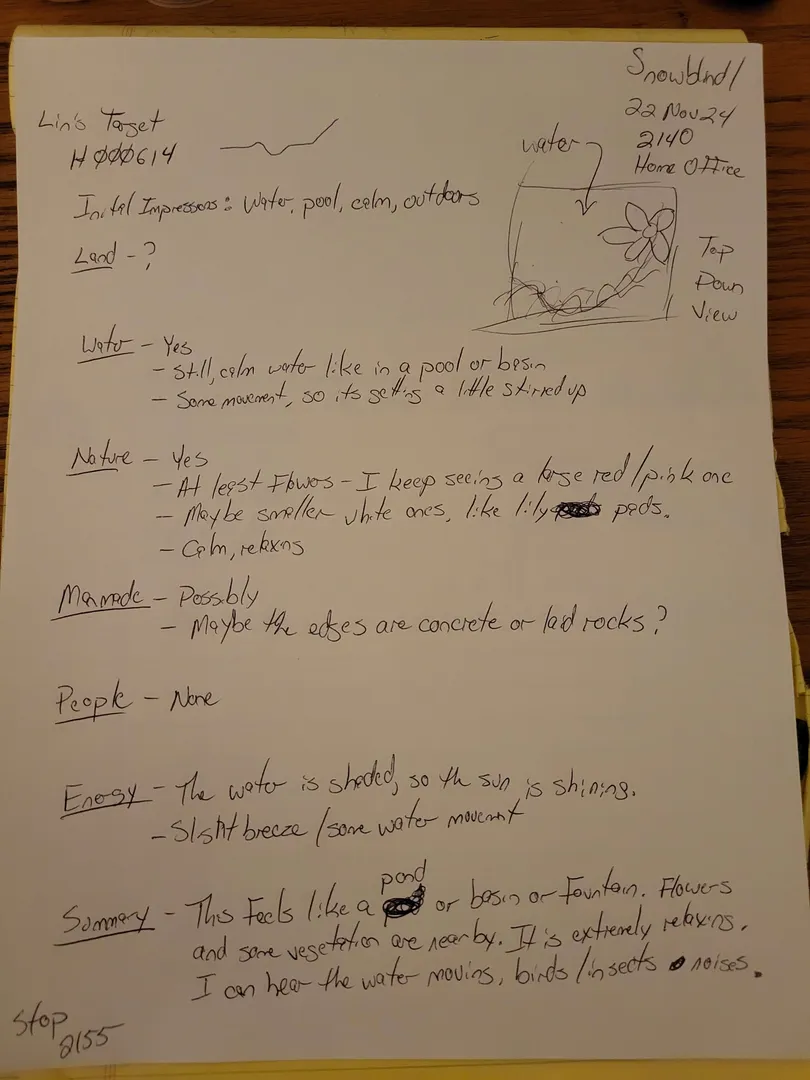 Snowblind/
22 Nov 24
2140
Home Office
Lin's Target
HØØØ614
water
Inital Impressions: Water, pool, calm, outdoors
Top
Down
View
Land - ?
Water - Yes
- Still, calm water like in a pool or basin
- Some movement, so its getting a little stirred up
Nature - Yes
- At least Flowers - I keep seeing a large red/pink one
- Maybe smaller white ones, like lily pads.
- Calm, relaxing
Manmade - Possibly
- Maybe the edges are concrete or laid rocks?
People - None
Energy - The water is shaded, so the sun is shining.
- Slight breeze/some water movement
Summary - This Feels like a pond or basin or Fountain. Flowers
and some vegetation are nearby. It is extremely relaxing.
I can hear the water moving, birds/insects noises.
Stop
2155